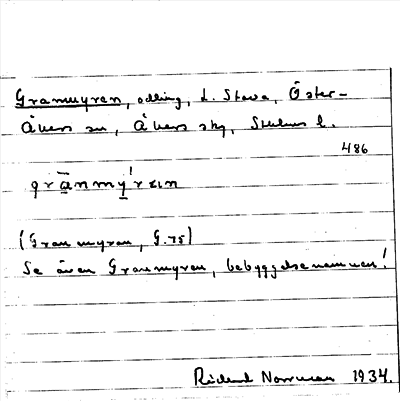 Granmyren, odling, L. Stava, Öster-
Åkers sn, Åkers skg, Sthlms l.
486
grānmy̱ŕzɩn
(Granmyran, G.75)
Se även Granmyran, bebyggelsenamnen!
Rickard Norrman 1934.